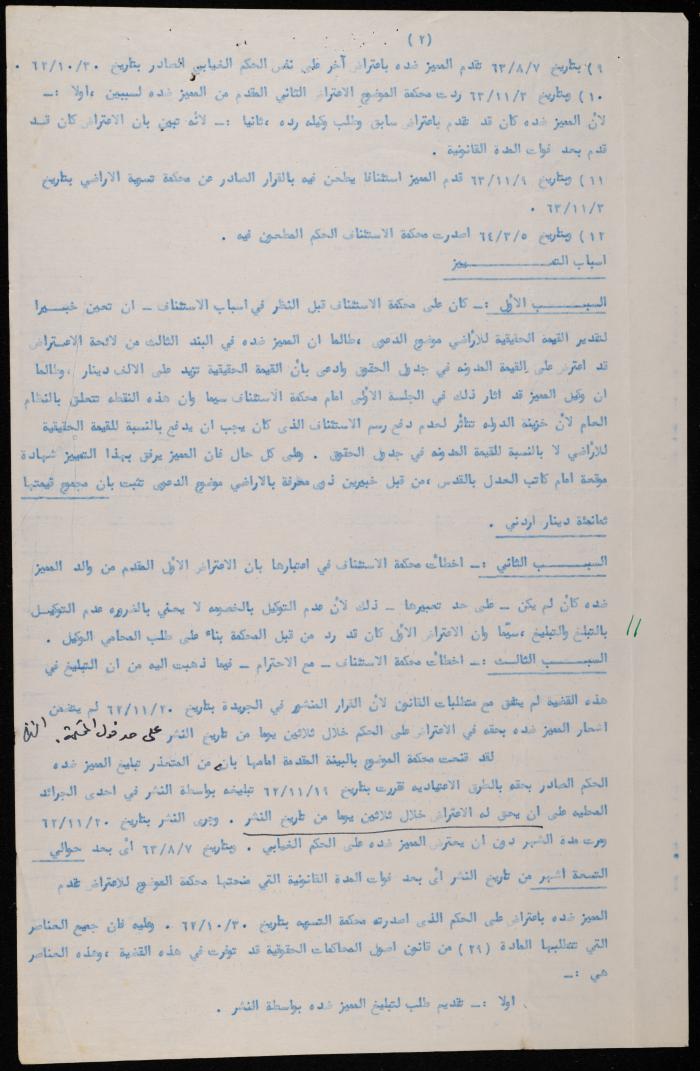 (٢)
٩) بتاريخ ٦٣/٨/٧ تقدم المميز ضده باعتراض آخر على نفس الحكم الغيابي الصادر بتاريخ ٦٢/١٠/٣٠ .
١٠) وبتاريخ ٦٣/١١/٢ ردت محكمة الموضوع الاعتراض الثاني المقدم من المميز ضده لسببين ، اولا :ـ
لأن المميز ضده كان قد تقدم باعتراض سابق وطلب وكيله رده ، ثانيا :ـ لأنه تبين بان الاعتراض كان قد
قدم بعد فوات المدة القانونية .
١١) وبتاريخ ٦٣/١١/٩ قدم المميز استئنافا يطعن فيه بالقرار الصادر عن محكمة تسوية الاراضي بتاريخ
٦٣/١١/٢ .
١٢) وبتاريخ ٦٤/٣/٥ اصدرت محكمة الاستئناف الحكم المطعون فيه .
اسباب التمـــــــــييز
الســبـــب الأول :ـ كان على محكمة الاستئناف قبل النظر في اسباب الاستئناف ـ ان تعين خبــيرا
لتقدير القيمة الحقيقية للأراضي موضوع الدعوى ، طالما ان المميز ضده في البند الثالث من لائحة الاعتــراض
قد اعترض على القيمة المدونه في جدول الحقوق وادعى بأن القيمة الحقيقية تزيد على الالف دينار ، وطالما
ان وكيل المميز قد اثار ذلك في الجلسة الأولى امام محكمة الاستئناف سيما وان هذه النقطه تتعلق بالنظام
العام لأن خزينة الدوله تتأثر لعدم دفع رسم الاستئناف الذى كان يجب ان يدفع بالنسبة للقيمة الحقيقية
للأراضي لا بالنسبة للقيمة المدونه في جدول الحقوق . وعلى كل حال فان المميز يرفق بهذا التمييز شهادة
موقعة امام كاتب العدل بالقدس ، من قبل خبيرين ذوى معرفة بالاراضي موضوع الدعوى تثبت بان مجموع قيمتها
ثمانمئة دينار اردني .
الســبـــب الثاني :ـ اخطأت محكمة الاستئناف في اعتبارها بان الاعتراض الأول المقدم من والد المميز
ضده كأن لم يكن ـ على حد تعبيرها ـ ذلك لأن عدم التوكيل بالخصومه لا يعني بالضروره عدم التوكيــل
بالتبلغ والتبليغ ، سيما وان الاعتراض الأول كان قد رد من قبل المحكمة بناء على طلب المحامي الوكيل .
الســبـــب الثالث :ـ اخطأت محكمة الاستئناف ـ مع الاحترام ـ فيما ذهبت اليه من ان التبليغ في
هذه القضية لم يتفق مع متطلبات القانون لأن القرار المنشور في الجريدة بتاريخ ٦٢/١١/٢٠ لم يتضمن
اشعار المميز ضده بحقه في الاعتراض على الحكم خلال ثلاثين يوما من تاريخ النشر على حد قول المحكمة .
لقد قنعت محكمة الموضوع بالبينة المقدمة امامها بان من المتعذر تبليغ المميز ضده
الحكم الصادر بحقه بالطرق الاعتياديه فقررت بتاريخ ٦٢/١١/١٩ تبليغه بواسطة النشر في احدى الجرائد
المحليه على ان يحق له الاعتراض خلال ثلاثين يوما من تاريخ النشر . وجرى النشر بتاريخ ٦٢/١١/٢٠
ومرت مدة الشهر دون ان يعترض المميز ضده على الحكم الغيابي . وبتاريخ ٦٣/٨/٧ أى بعد حوالي
التسعة اشهر من تاريخ النشر أى بعد فوات المدة القانونية التي منحتها محكمة الموضوع للاعتراض تقدم
المميز ضده باعتراض على الحكم الذى اصدرته محكمة التسويه بتاريخ ٦٢/١٠/٣٠ . وعليه فان جميع العناصر
التي تتطلبها المادة (٢٩) من قانون اصول المحاكمات الحقوقية قد توفرت في هذه القضية ، وهذه العناصر
هي :ـ
اولا :ـ تقديم طلب لتبليغ المميز ضده بواسطة النشر .